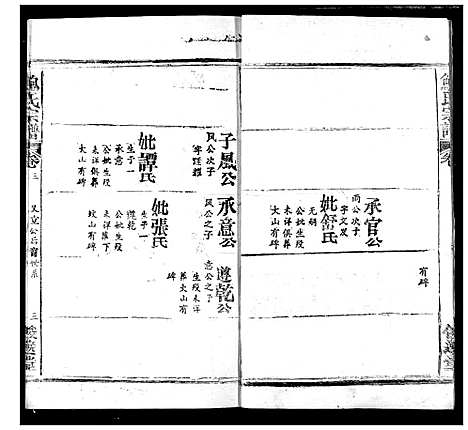 有碑
承官公
雨公次子
字文发
妣舒氏
无嗣
公妣生殁
未详俱葬
大山有碑
子風公
风公次子
字廷
妣譚氏
生子一
承意
公妣生殁
未详俱葬
大山有碑
承意公
风公之子
妣張氏
生子一
遵乾
公妣生殁
未详葬下
坟山有碑
遵乾公
意公之子
生殁未详
葬大山有
碑
鮑氏宗譜
卷
三
三